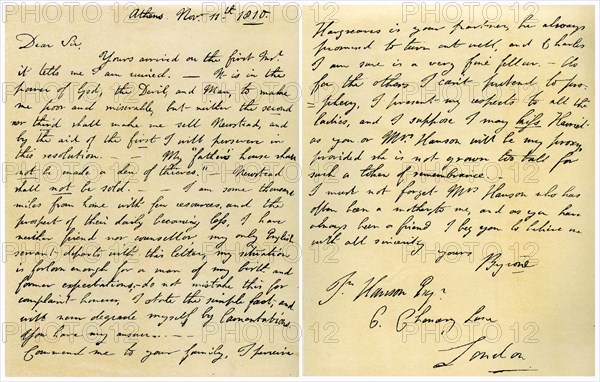 Athens Nov. 11th 1810.
Dear Sir,
Yours arrived on the first Inst.
it tells me I am ruined. — It is in the
power of God, the Devil, and Man, to make
me poor and miserable, but neither the second
nor third shall make me sell Newstead, and
by the aid of the first I will persevere in
this resolution. — "My father's house shall
not be made a den of thieves." Newstead
shall not be sold. — I am some thousand
miles from home with few resources, and the
prospect of their daily becoming less, I have
neither friend nor counsellor my only English
servant departs with this letter, my situation
is forlorn enough for a man of my birth and
former expectations; — do not mistake this for
complaint however, I state the simple fact, and
will never degrade myself by Lamentations.
You have my answer. —
Commend me to your family, I perceive
Hargreaves is your partner, he always
promised to turn out well, and Charles
I am sure is a very fine fellow. — As
for the others I can't pretend to pro-
=phecy, I present my respects to all the
ladies, and I suppose I may kiss Harriet
as you or Mrs Hanson will be my proxy
provided she is not grown too tall for
such a token of remembrance.
I must not forget Mrs Hanson who has
often been a mother to me, and as you have
always been a friend I beg you to believe me
with all sincerity
yours
Byron
Jn Hanson Esqr.
6. Chancery Lane
London
PHOTO12